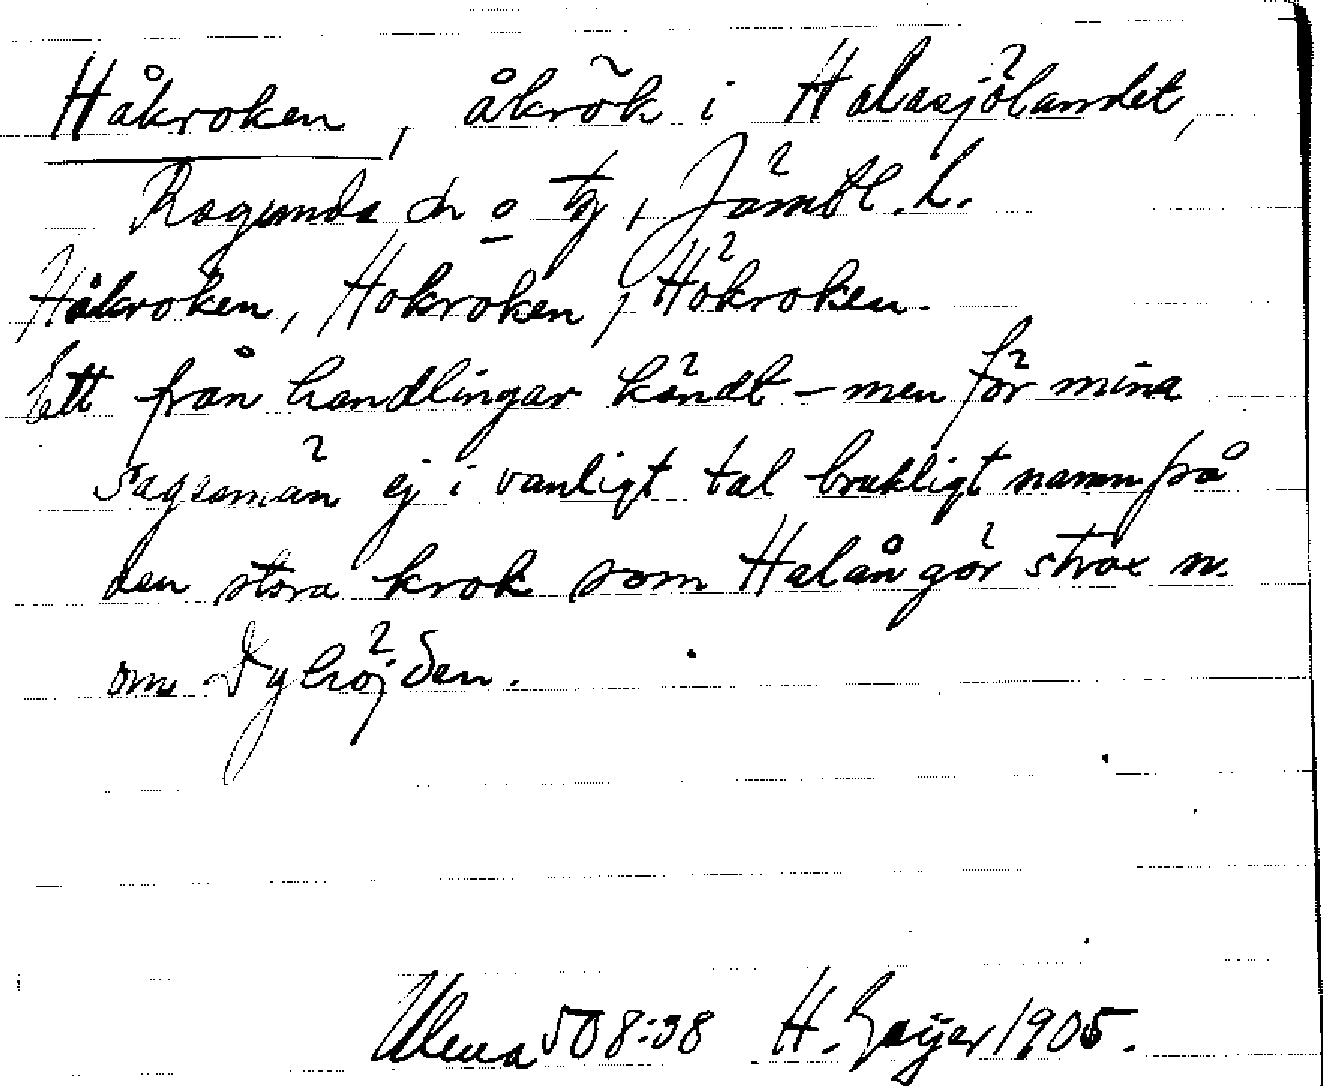 Håkroken, åkrök i Halasjölandet,
Ragunda sn o tg, Jämtl. l.
Håkroken, Hokroken, Hökroken.
Ett från handlingar kändt – men för mina
sagesmän ej i vanligt tal brukligt namn på
den stora krok som Halån gör strax n.
om Dyhöjden.
Ulma 508:38 H. Geijer 1905.